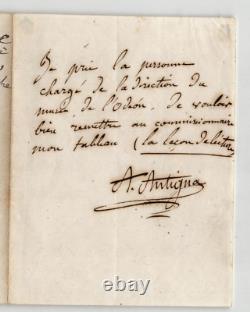 Je prie la personne
chargé de la direction du
musée de l'Odéon de vouloir
bien remettre au commissionnaire
mon tableau (la leçon de lecture
A. Antigna